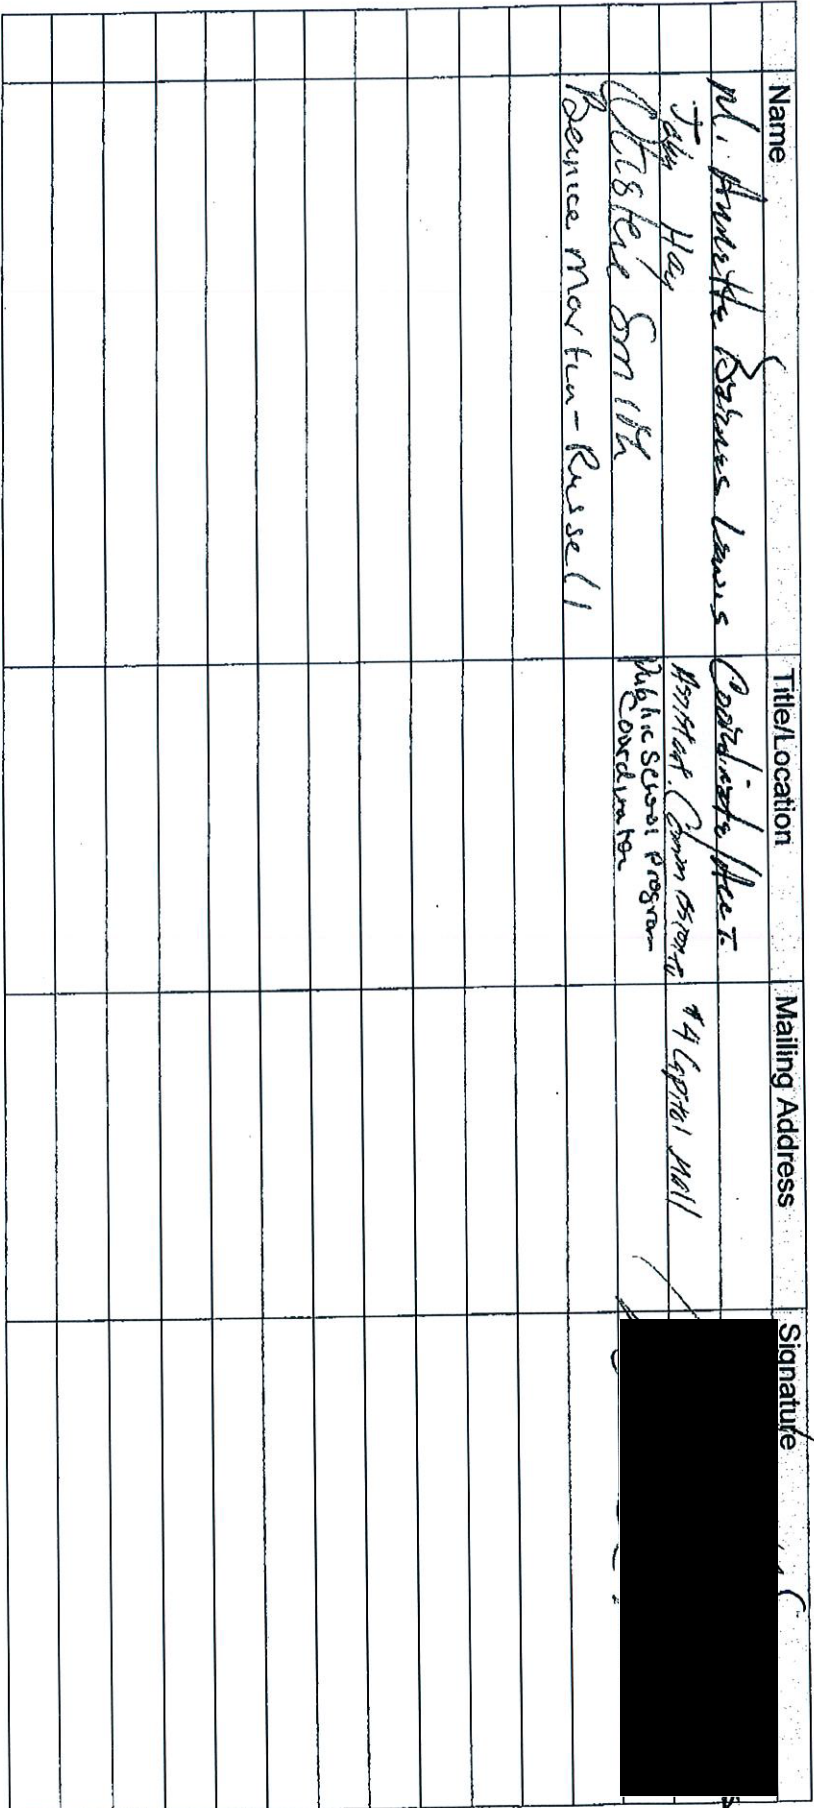 Name Title/Location Mailing Address Signature
M. Annette Barnes Lewis Coordinator/Acct.
John Hoy Assistant Commissioner #4 Capitol Mall
Otistene Smith Public School Program
Coordinator
Bernice Martin-Russell